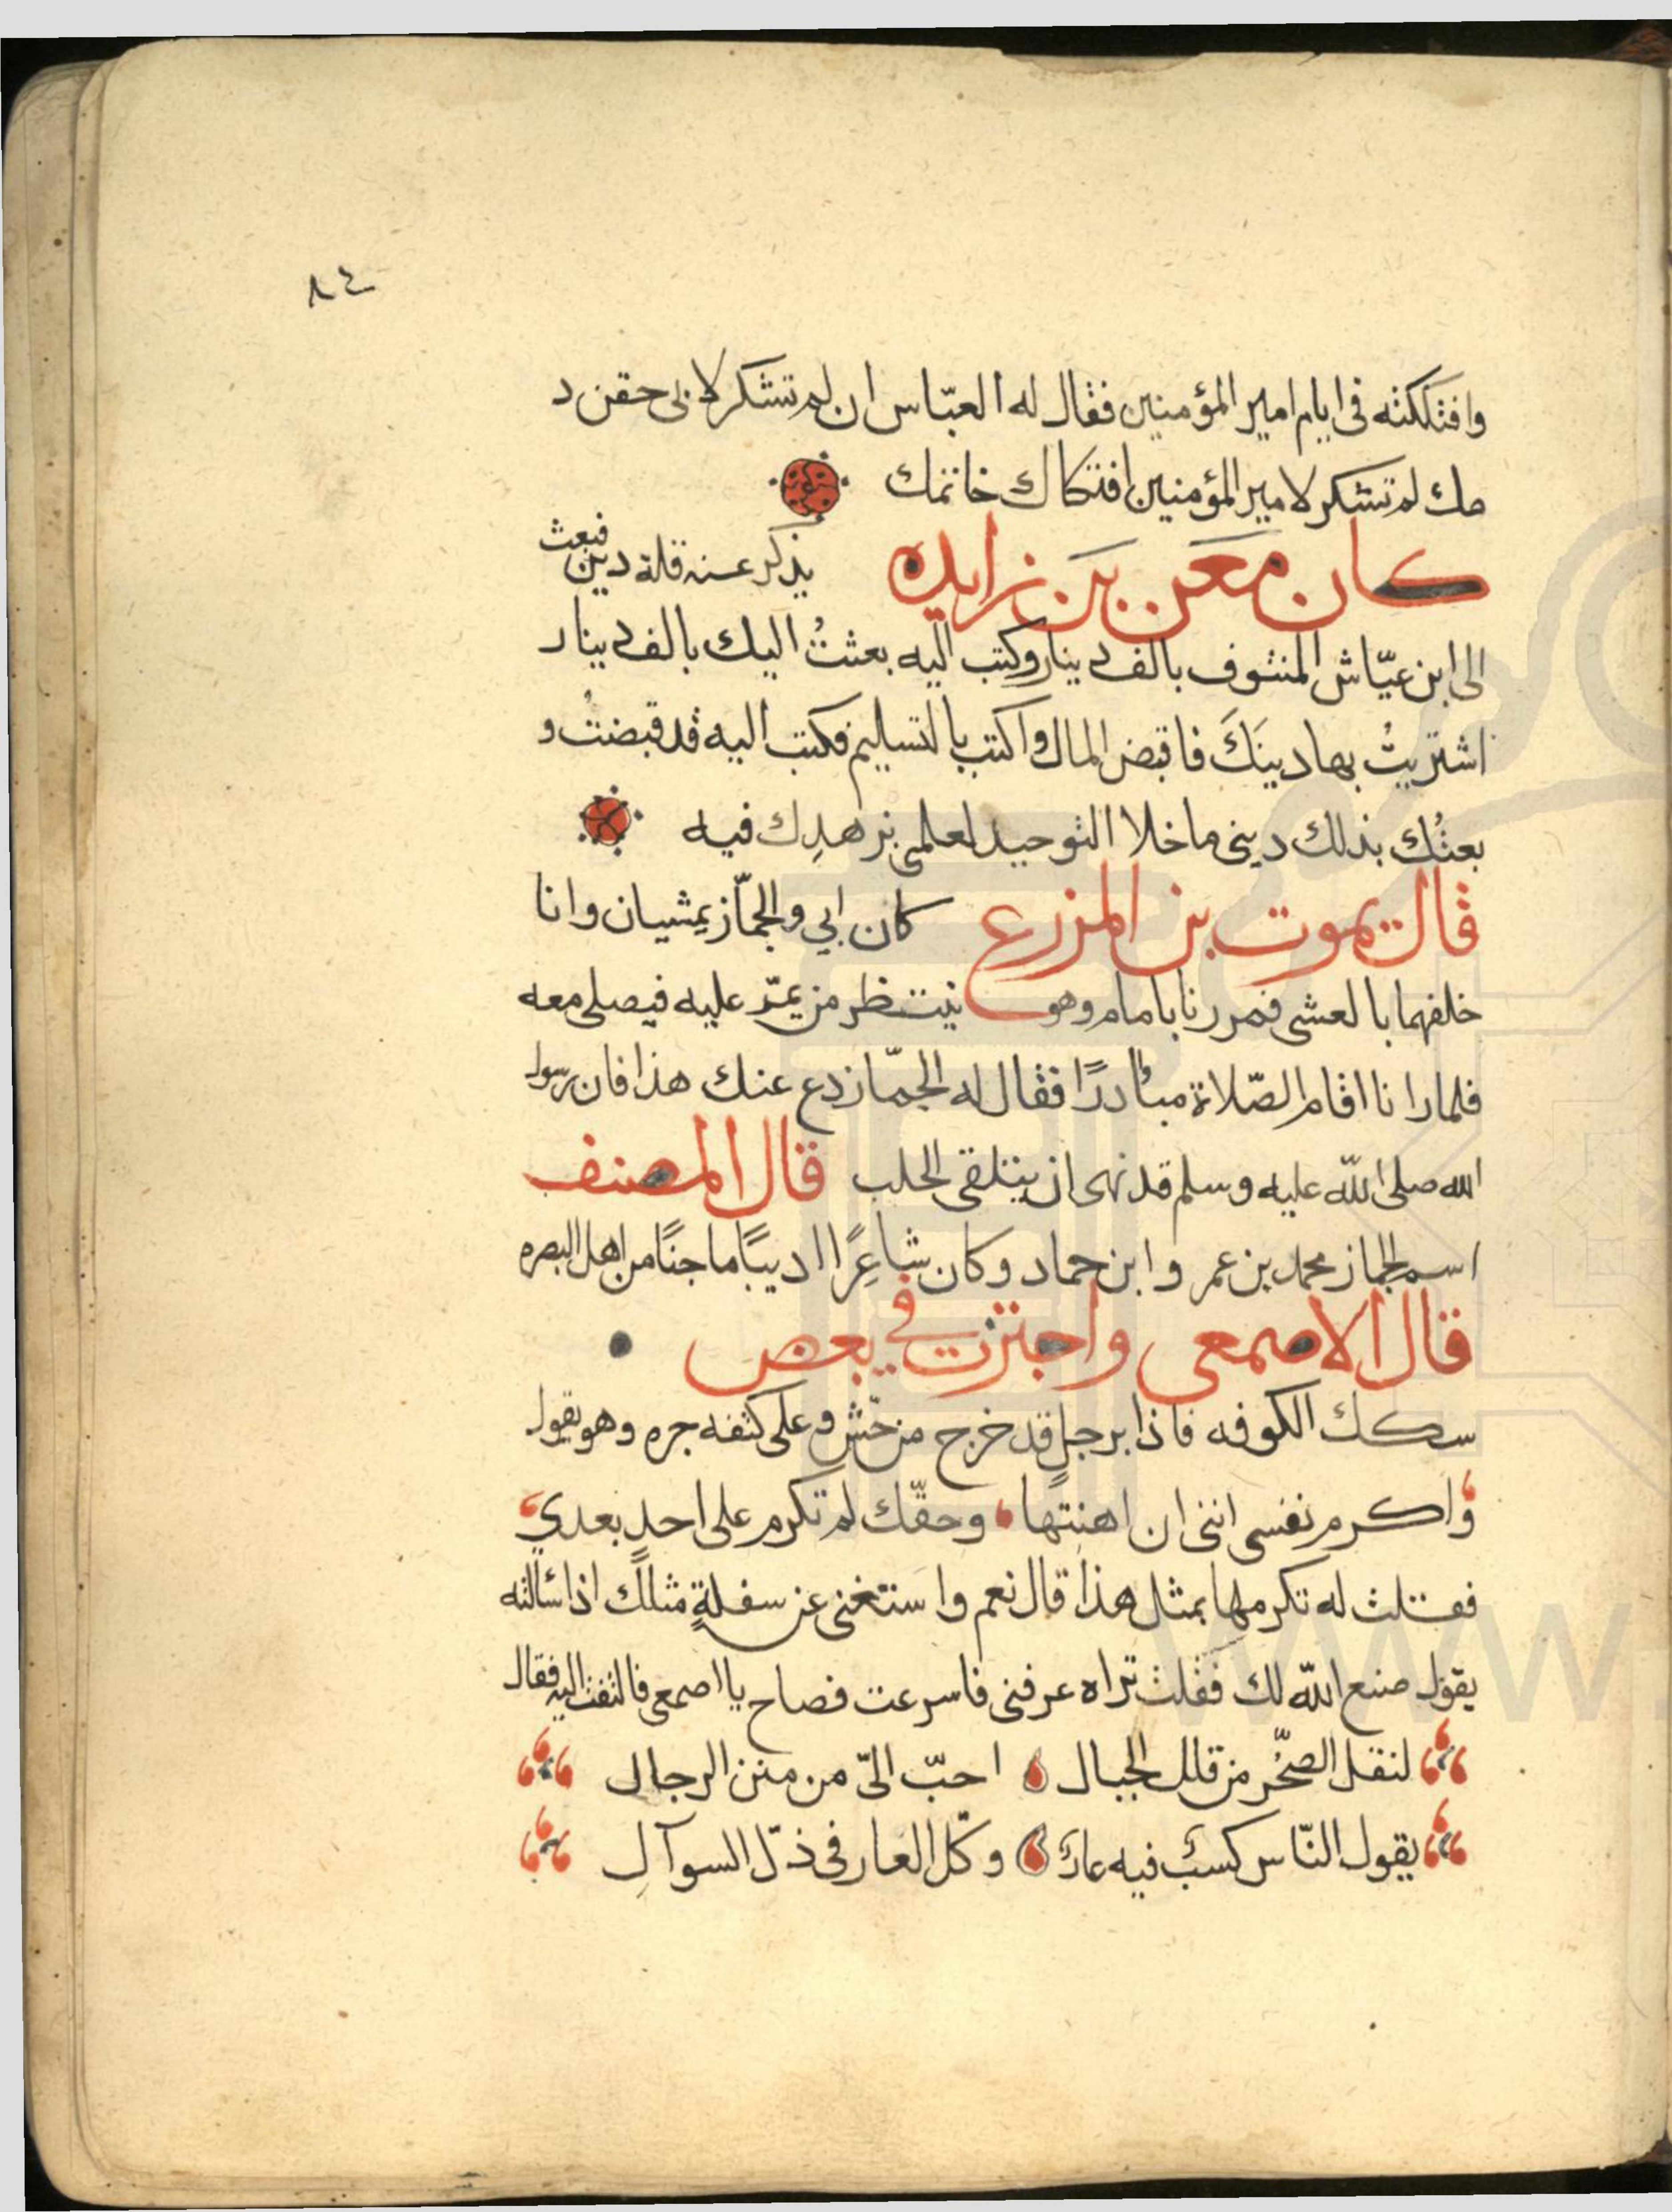 ٨٤
وافتككته في ايام امير المؤمنين فقال له العبّاس ان لم تشكر لابي حقن د
مك لم تشكر لامير المؤمنين افتكاك خاتمك
كان معن بن زايده يذكر عنه قلة دين فبعث
الى ابن عيّاش المنتوف بالف دينار وكتب اليه بعثتُ اليك بالف دينار
اشتريتُ بها دينَكَ فاقبض المال واكتب بالتسليم فكتب اليه قد قبضتُ و
بعتُك بذلك ديني ما خلا التوحيد لعلمي بزهدِك فيه
قال يموت بن المزرع كان ابي والجمّاز يمشيان وانا
خلفهما بالعشي فمررنا بامام وهو ينتظر من يمرّ عليه فيصلي معه
فلما رانا اقام الصّلاة مبادرًا فقال له الجمّاز دع عنك هذا فان رسول
الله صلى اللّه عليه وسلم قد نهى ان يتلقى الجلب قال المصنف
اسم الجماز محمد بن عمر وابن حماد وكان شاعِرًا اديبًا ماجنًا من اهل البصره
قال الاصمعي واجتزت في بعض
سكك الكوفه فاذا برجلٍ قد خرج من حّش وعلى كتفه جره وهو يقول
واكرم نفسي انني ان اهنتها وحقّك لم تكرم على احدٍ بعدي
فقلت له تكرمها بمثل هذا قال نعم واستغني عن سفلةٍ مثلك اذا سألته
يقول صنع اللّه لك فقلت تراه عرفني فاسرعت فصاح يا اصمعي فالتفت اليه فقال
لنقل الصّخر من قلل الجبال احبّ اليّ من منن الرجال
يقول النّاس كسبٌ فيه عارٌ وكلّ العار في ذلّ السوآلِ